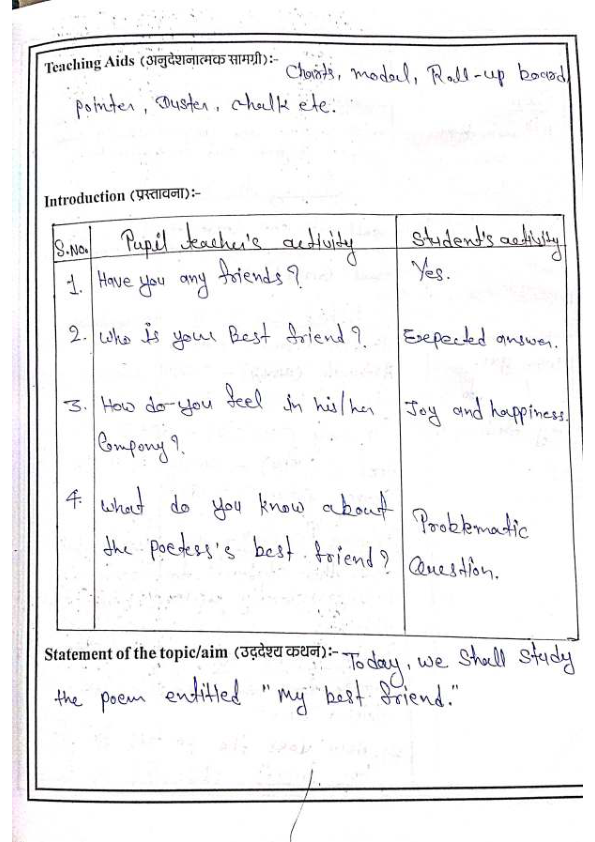 Teaching Aids (अनुदेशनात्मक सामग्री):- Charts, modal, Roll-up board,
pointer, Duster, chalk etc.
Introduction (प्रस्तावना):-
S.No. Pupil teacher's activity Student's activity
1. Have you any friends? Yes.
2. Who is your Best friend? Expected answer.
3. How do you feel in his/her Joy and happiness.
Company?
4. What do you know about Problematic
the poetess's best friend? Question.
Statement of the topic/aim (उद्देश्य कथन):- Today, we Shall Study
the poem entitled "My best friend."